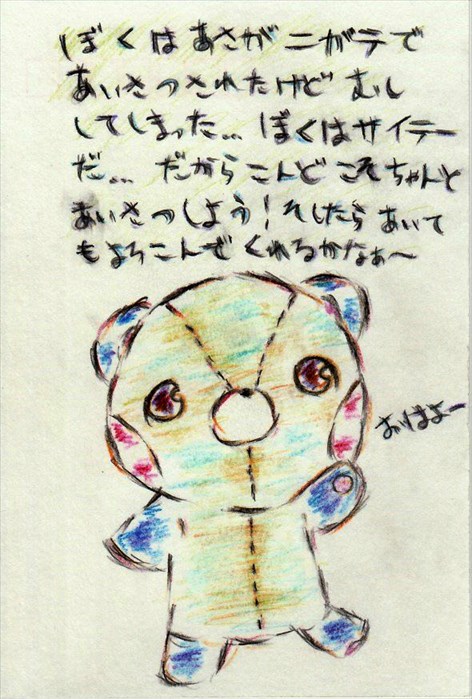 ぼくはあさがニガテで
あいさつされたけど むし
してしまった... ぼくはサイテー
だ... だからこんど こそちゃんと
あいさつしよう! そしたら あいて
もよろこんで くれるかなぁ〜
おはよー